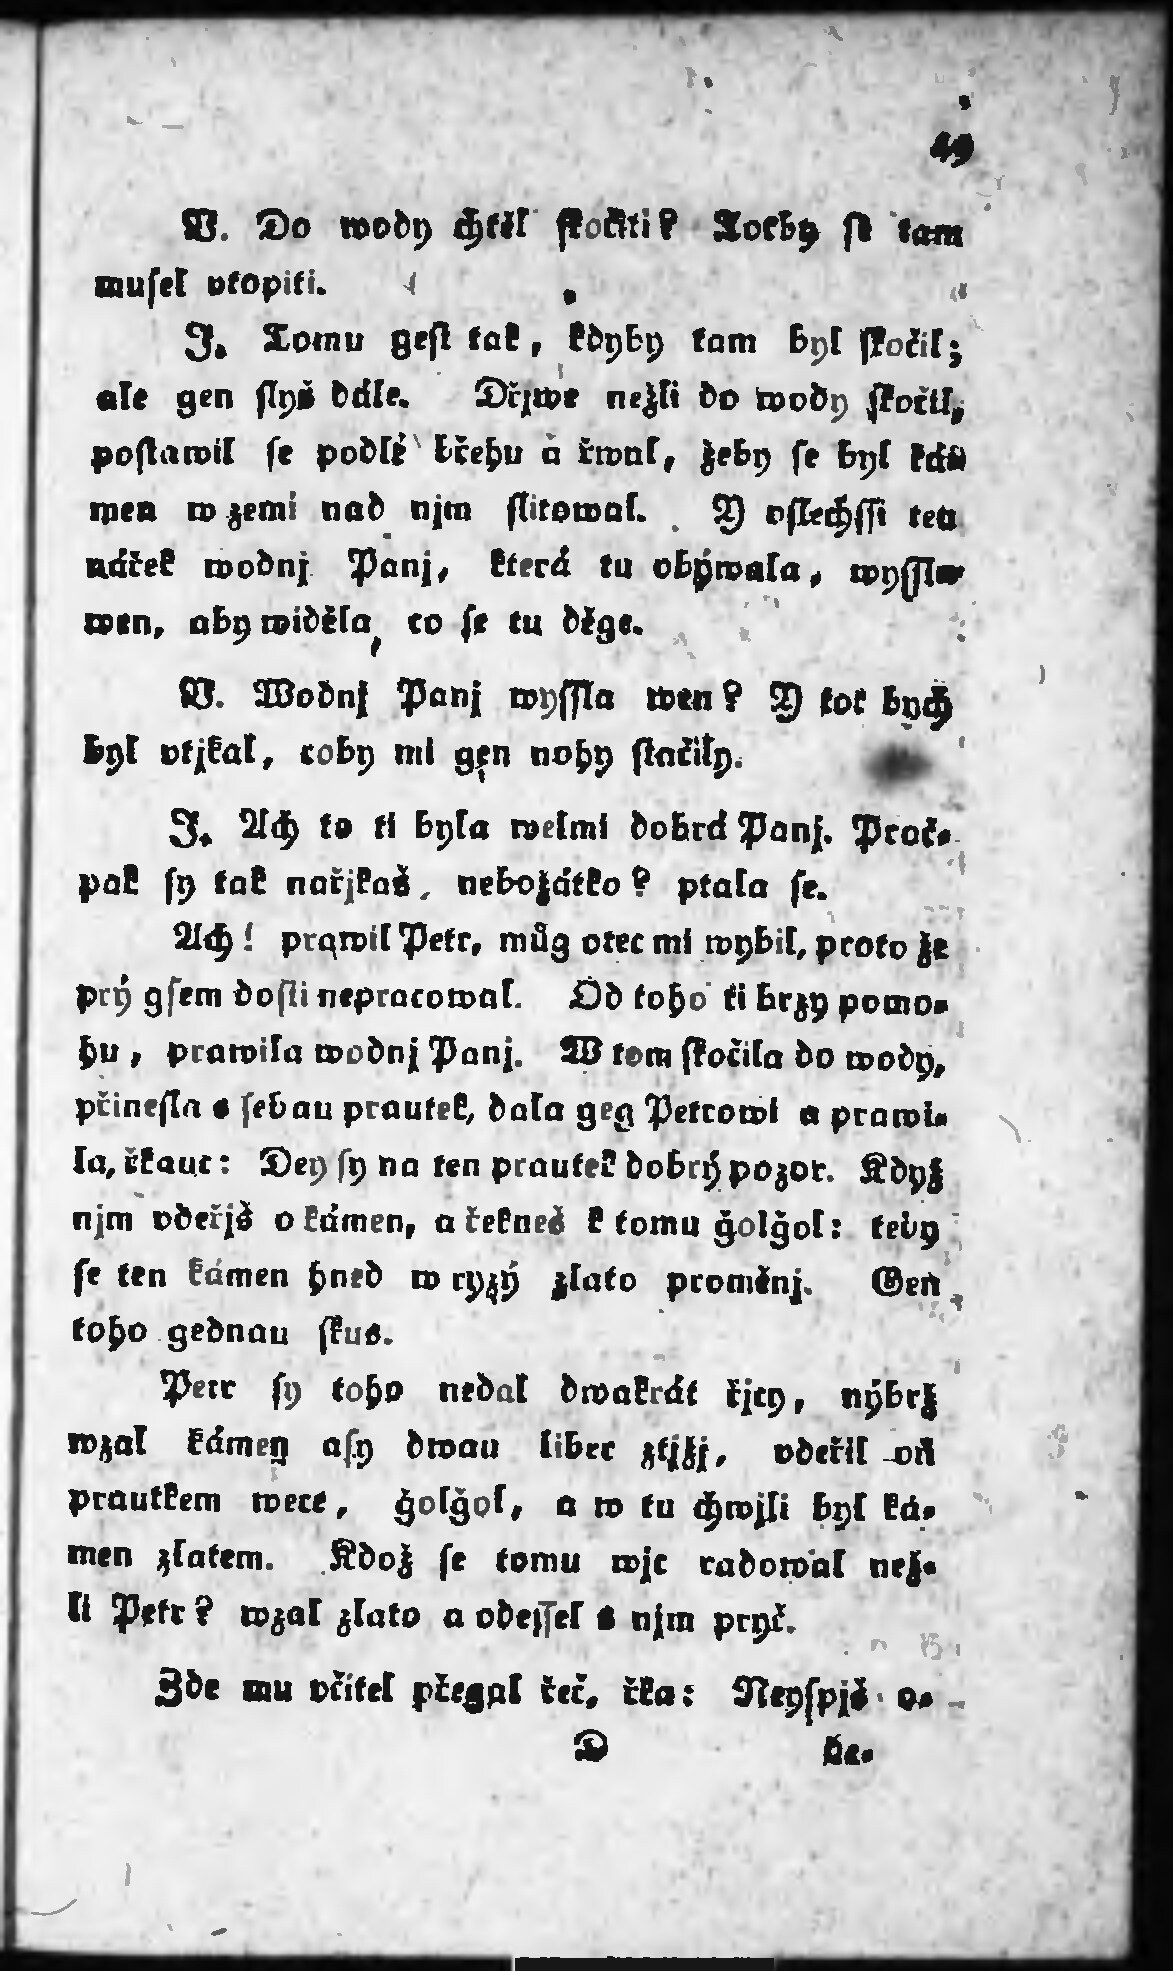 49
W. Do wody chtěl skočiti? Toťby se tam
musel vtopiti.
J. Tomu gest tak, kdyby tam byl skočil;
ale gen slyš dále. Dřjwe nežli do wody skočil,
postawil se podlé břehu a řwal, žeby se byl ká-
men w zemi nad njm slitowal. Y vslechssi ten
nářek wodnj Panj, která tu obýwala, wyssla
wen, aby widěla, co se tu děge.
W. Wodnj Panj wyssla wen? Y toť bych
byl vtjkal, coby mi gen nohy stačily.
J. Ach to ti byla welmi dobrá Panj. Proč-
pak sy tak nařjkaš, nebožátko? ptala se.
Ach! prawil Petr, můg otec mi wybil, proto že
prý gsem dosti nepracowal. Od toho ti brzy pomo-
hu, prawila wodnj Panj. W tom skočila do wody,
přinesla s sebau prautek, dala geg Petrowi a prawi-
la, řkauc: Dey sy na ten prautek dobrý pozor. Když
njm vdeřjš o kámen, a řekneš k tomu ǧolǧol: teby
se ten kámen hned w ryzý zlato proměnj. Gen
toho gednau skus.
Petr sy toho nedal dwakrát řjcy, nýbrž
wzal kámen asy dwau liber ztjžj, vdeřil oň
prautkem wece, ǧolǧol, a w tu chwjli byl ká-
men zlatem. Kdož se tomu wjc radowal než-
li Petr? wzal zlato a odessel s njm pryč.
Zde mu včitel přegal řeč, řka: Neyspjš o-
D                 be-